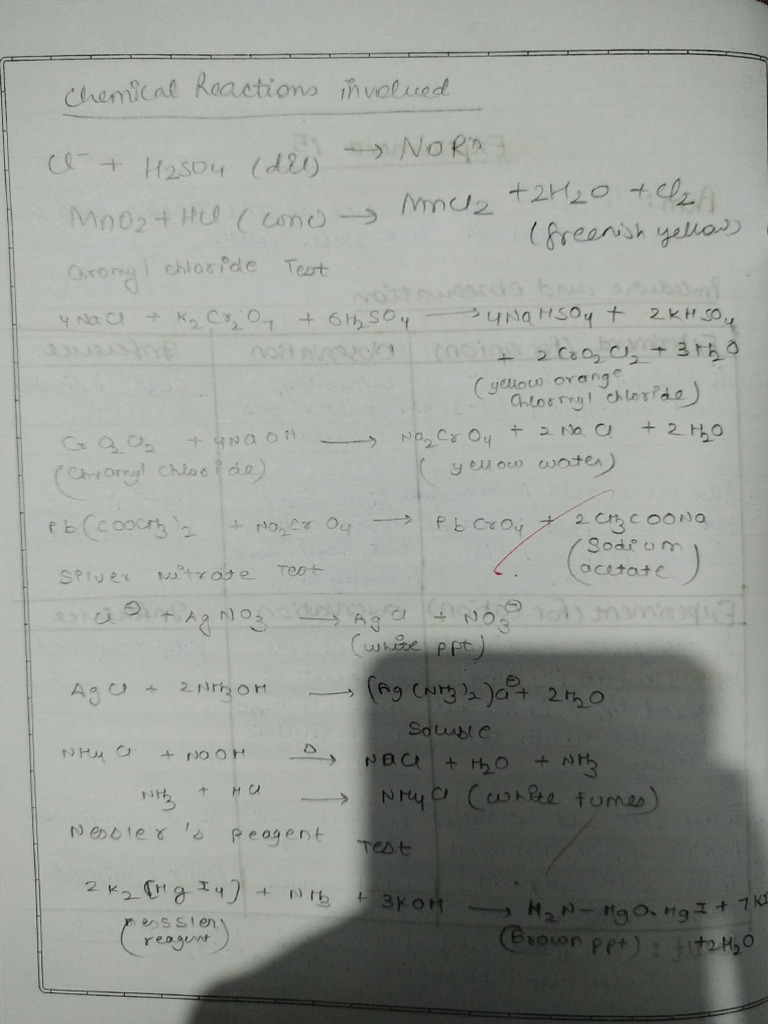 Chemical Reactions involved
Cl⁻ + H2SO4 (dil) → NO Rxn
MnO2 + HCl (conc) → MnCl2 + 2H2O + Cl2
(Greenish yellow)
Chromyl chloride Test
4NaCl + K2Cr2O7 + 6H2SO4 → 4NaHSO4 + 2KHSO4
+ 2CrO2Cl2 + 3H2O
(yellow orange
Chlormyl chloride)
CrO2Cl2 + 4NaOH → Na2CrO4 + 2NaCl + 2H2O
(Chromyl chloride) (yellow water)
Pb(COOCH3)2 + Na2CrO4 → PbCrO4 + 2CH3COONa
(Sodium
acetate)
Silver nitrate Test
Cl⊖ + AgNO3 → AgCl + NO3⊖
(white ppt)
AgCl + 2NH3OH → (Ag(NH3)2)Cl⊖ + 2H2O
Soluble
NH4Cl + NaOH Δ→ NaCl + H2O + NH3
NH3 + HCl → NH4Cl (white fumes)
Nessler's Reagent Test
2K2[HgI4] + NH3 + 3KOH → H2N-HgO.HgI + 7KI
(nesssler
reagent) (Brown ppt) + 2H2O